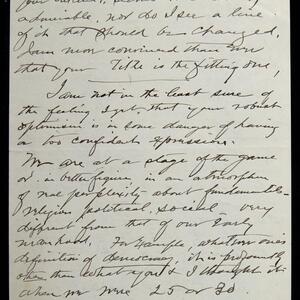 admirable, nor do I see a line
of it that should be changed,
I am more convinced than ever
that your Title is the fitting one,
I am not in the least sure of
the feeling I get, that your robust
optimism is in some danger of having
a too confident expression.
We are at a stage of the game
or in better figure, in an atmosphere
of real perplexity about fundamentals
religious, political, social very
different from that of our Early
manhood. For Example, whatever one's
definition of democracy, it is profoundly
other than what you & I thought it
when we were 25 or 30.